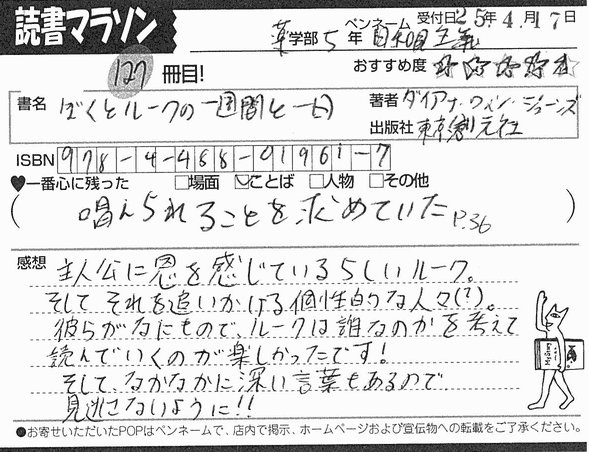 読書マラソン
ペンネーム 受付日25年4月17日
薬学部5年
127冊目!
おすすめ度
書名 ぼくとルークの一週間と一日
著者 ダイアナ・ウィン・ジョーンズ
出版社 東京創元社
ISBN 978-4-488-01961-7
♥一番心に残った □場面 ☑ことば □人物 □その他
(唱えられることを求めていた P.36)
感想 主人公に恩を感じているらしいルーク。
そして それを追いかける個性的な人々(?)。
彼らがなにもので、ルークは誰なのかを考えて
読んでいくのが楽しかったです!
そして、なかなかに深い言葉もあるので
見逃さないように!!
●お寄せいただいたPOPはペンネームで、店内で掲示、ホームページおよび宣伝物への転載をご了承ください。